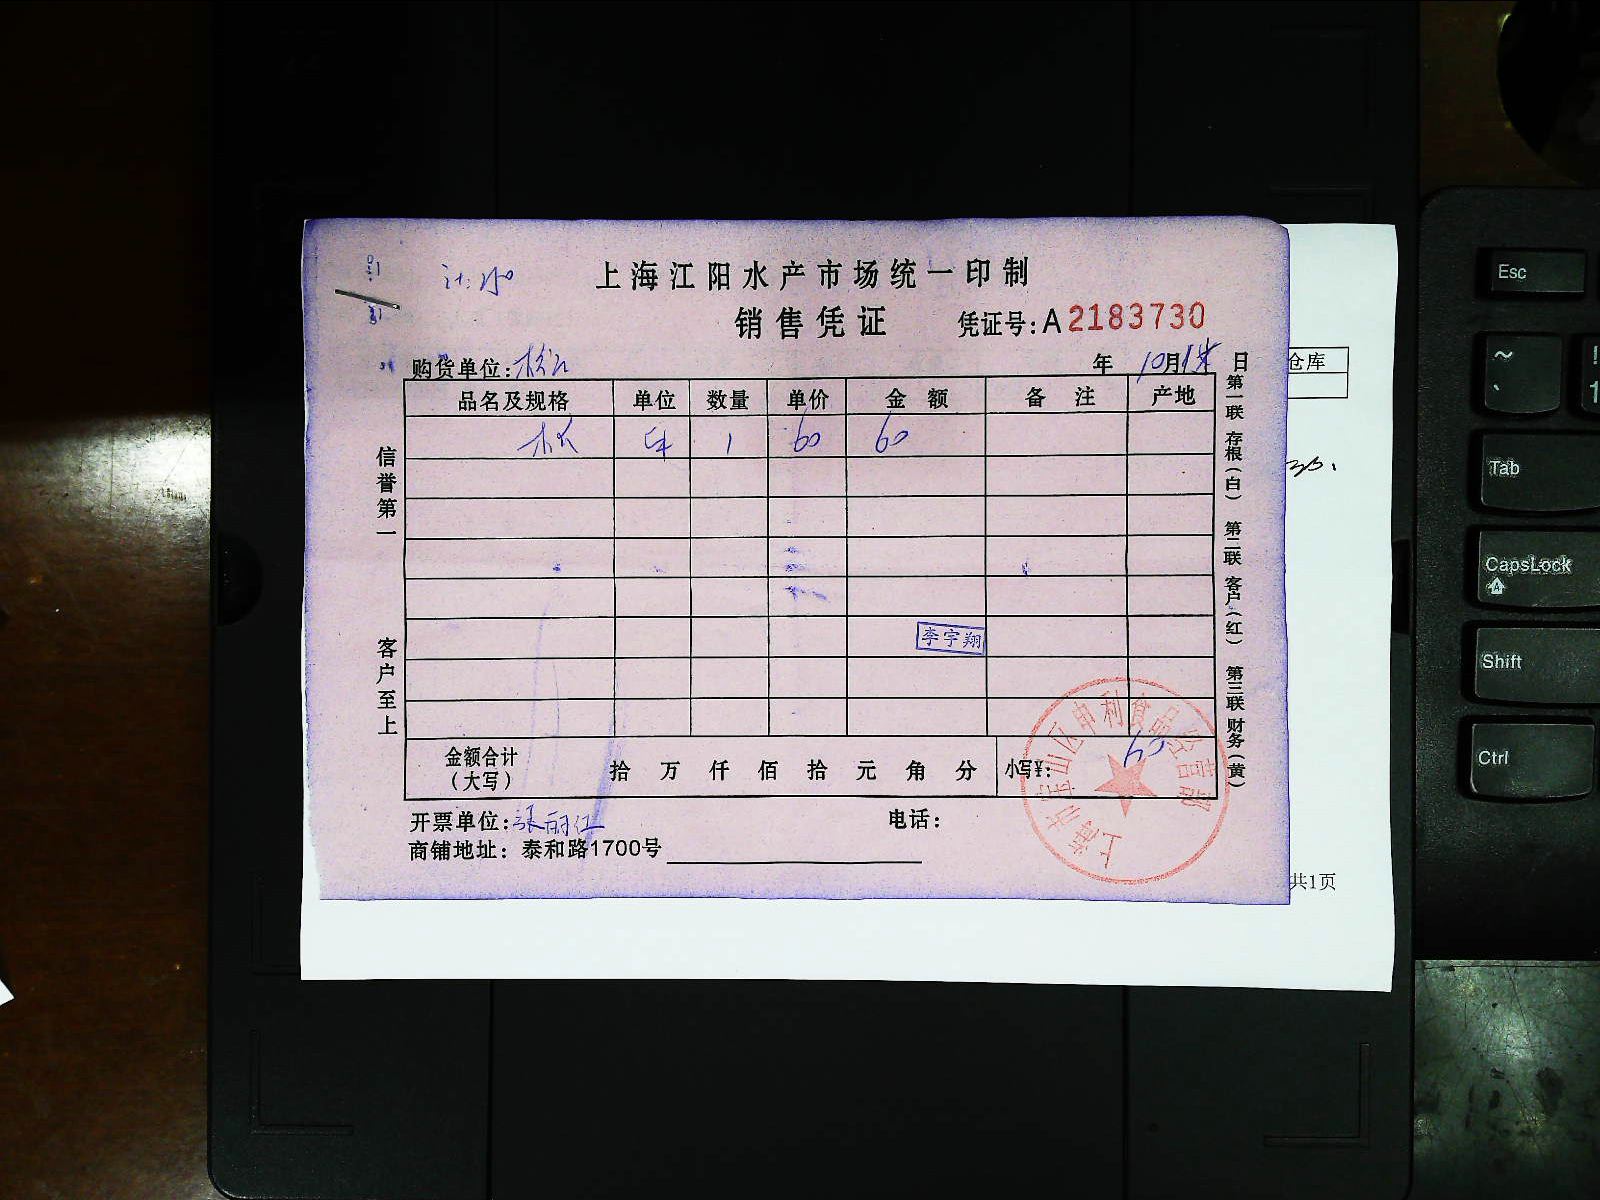 上海江阳水产市场统一印制
销售凭证
凭证号:A2183730
购货单位:
年 10月 日
品名及规格 单位 数量 单价 金额 备注 产地
1 60 60
李宇翔
金额合计(大写) 拾 万 仟 佰 拾 元 角 分 小写¥: 60
开票单位:张丽红
电话:
商铺地址: 泰和路1700号
信誉第一
客户至上
第一联 存根(白) 第二联 客户(红) 第三联 财务(黄)
上海市宝山区申利食品经营部
仓库
共1页
Esc
~
`
!
1
Tab
CapsLock
A
Shift
Ctrl